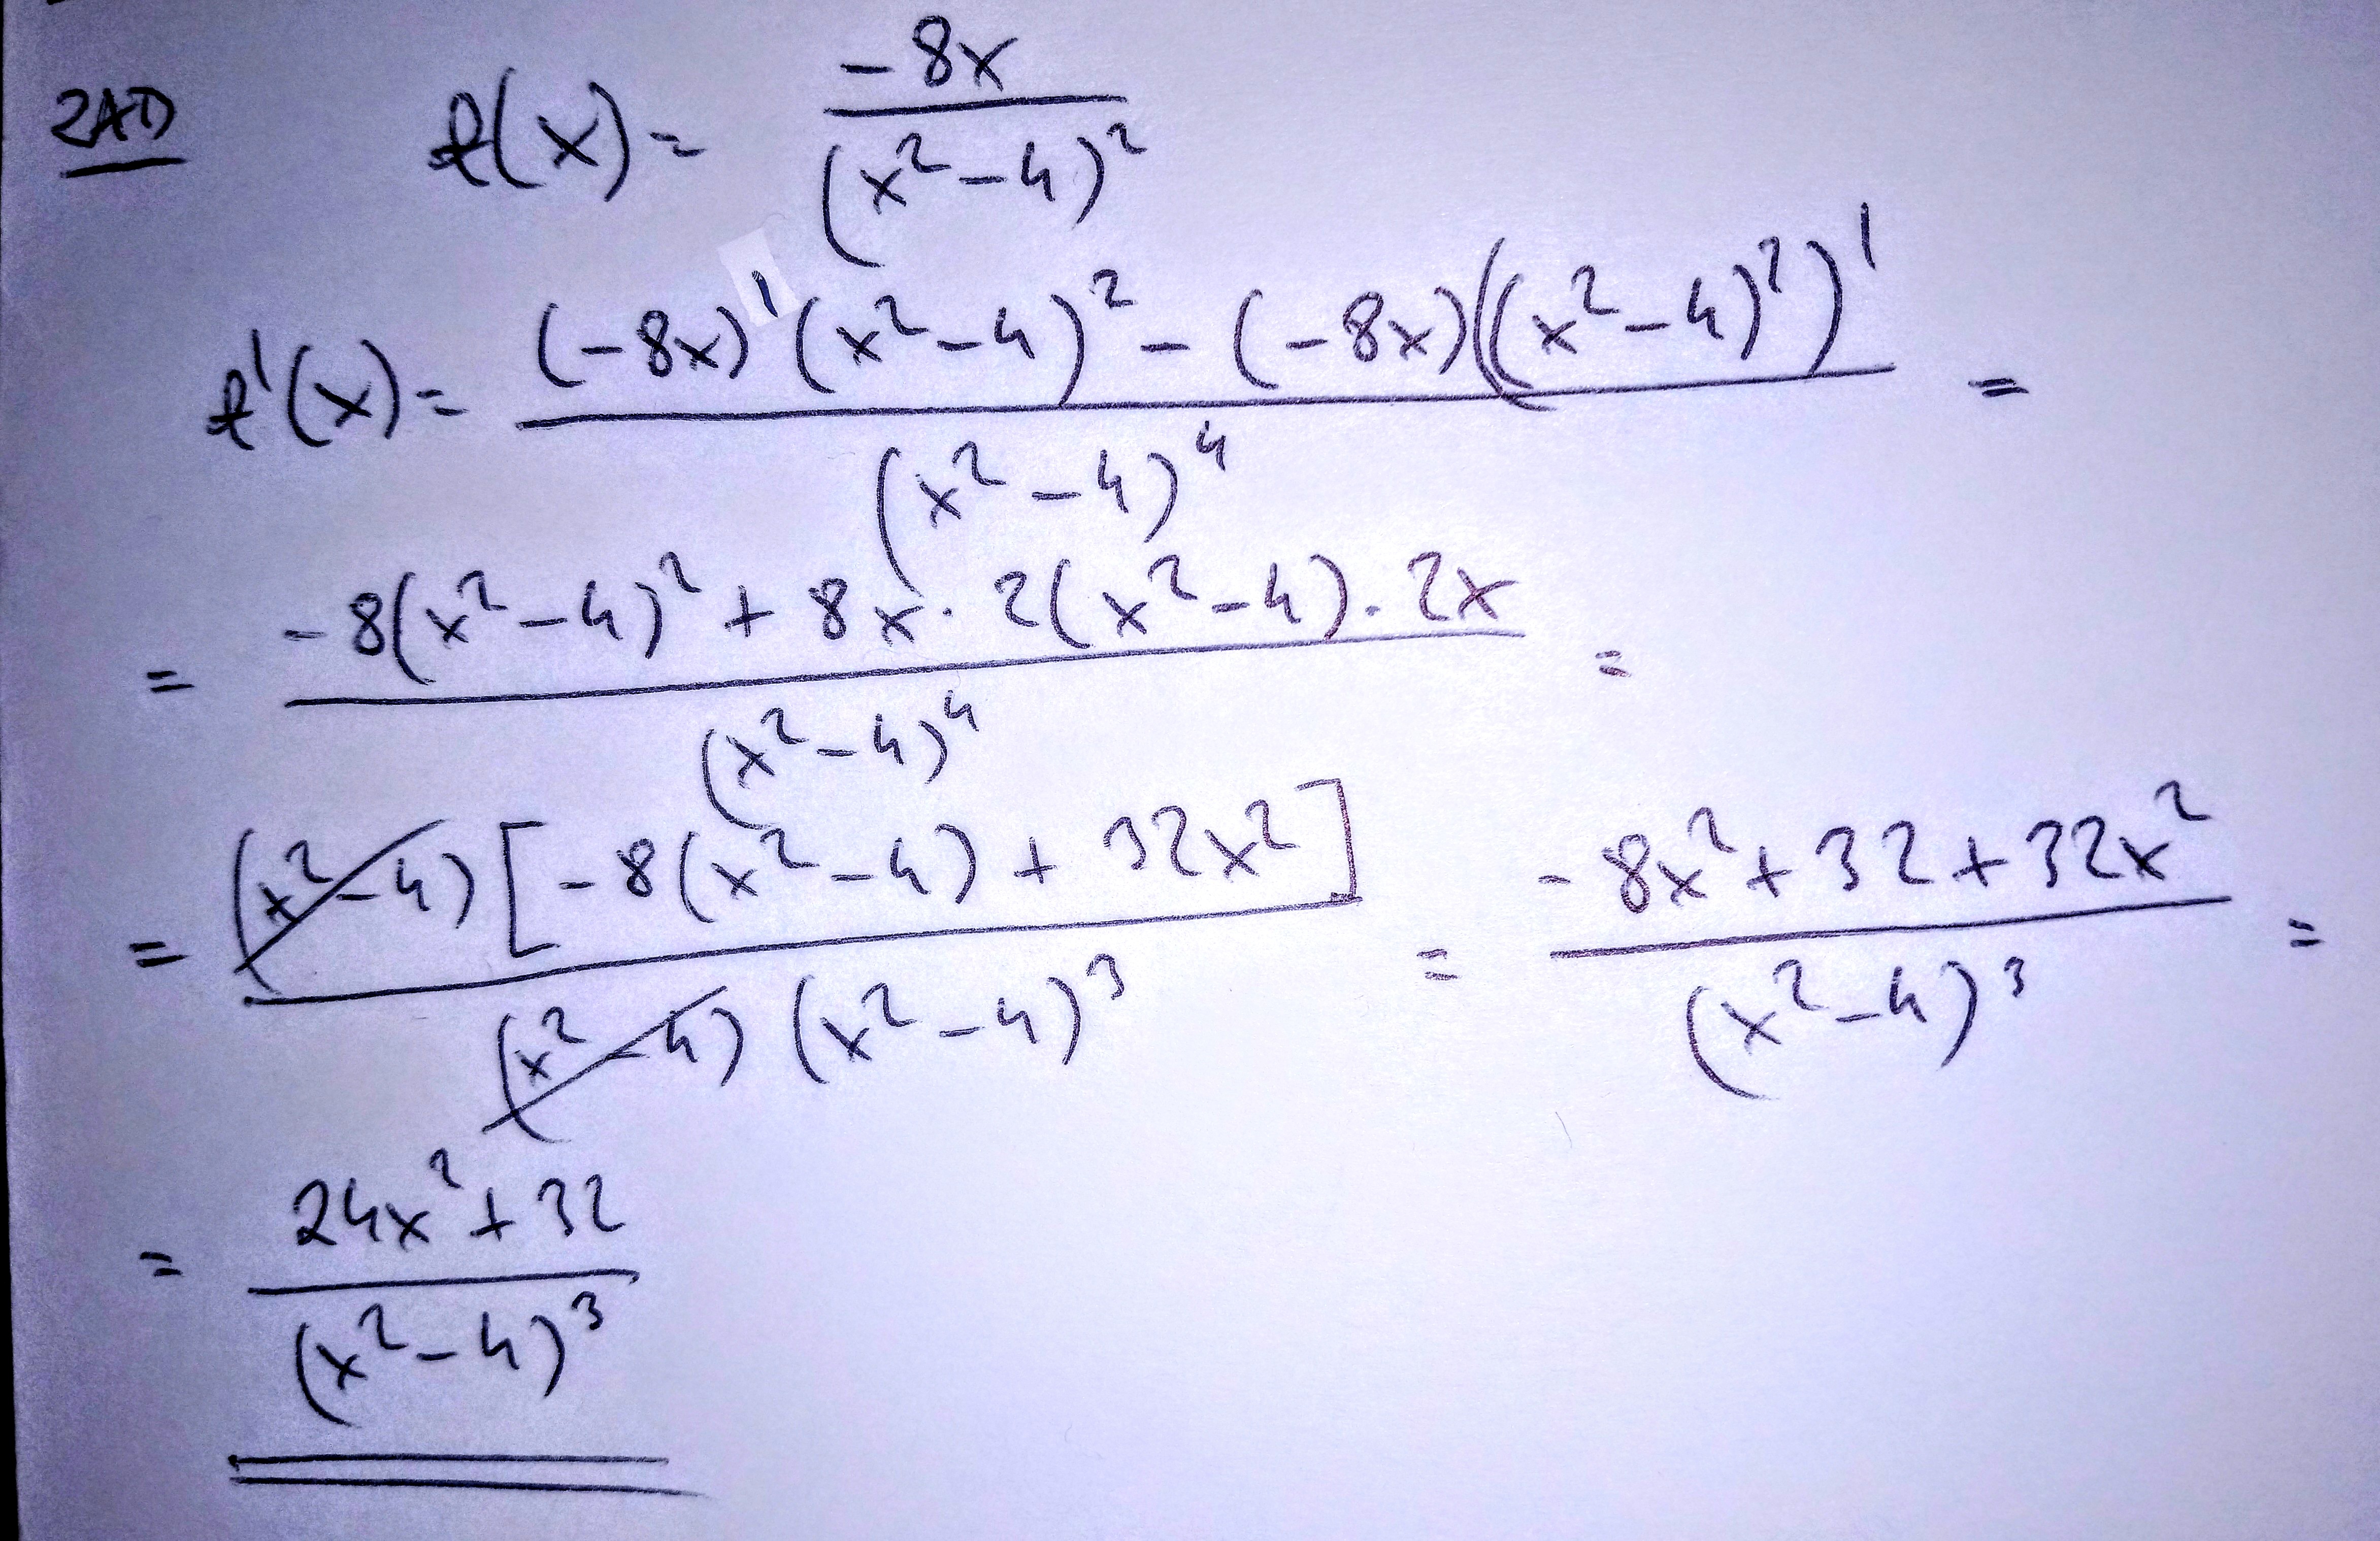 ZAD f(x) = \frac{-8x}{(x^2-4)^2}
f'(x) = \frac{(-8x)'(x^2-4)^2 - (-8x)((x^2-4)^2)'}{(x^2-4)^4} =
= \frac{-8(x^2-4)^2 + 8x \cdot 2(x^2-4) \cdot 2x}{(x^2-4)^4} =
= \frac{(x^2-4)[-8(x^2-4) + 32x^2]}{(x^2-4)(x^2-4)^3} = \frac{-8x^2+32+32x^2}{(x^2-4)^3} =
= \frac{24x^2+32}{(x^2-4)^3}